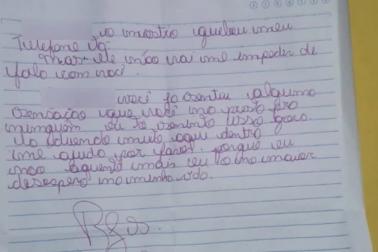 o monstro quebou meu
Telefone da
Mas ele não vai me impedir de
fala com você.
você já sentiu alguma
sensação que você não presta pra
ninguém eu to sentindo isso
ta doendo muito aqui dentro
me ajuda por favor. porque eu
não aguento mais eu to no maior
desespero na minha vida.